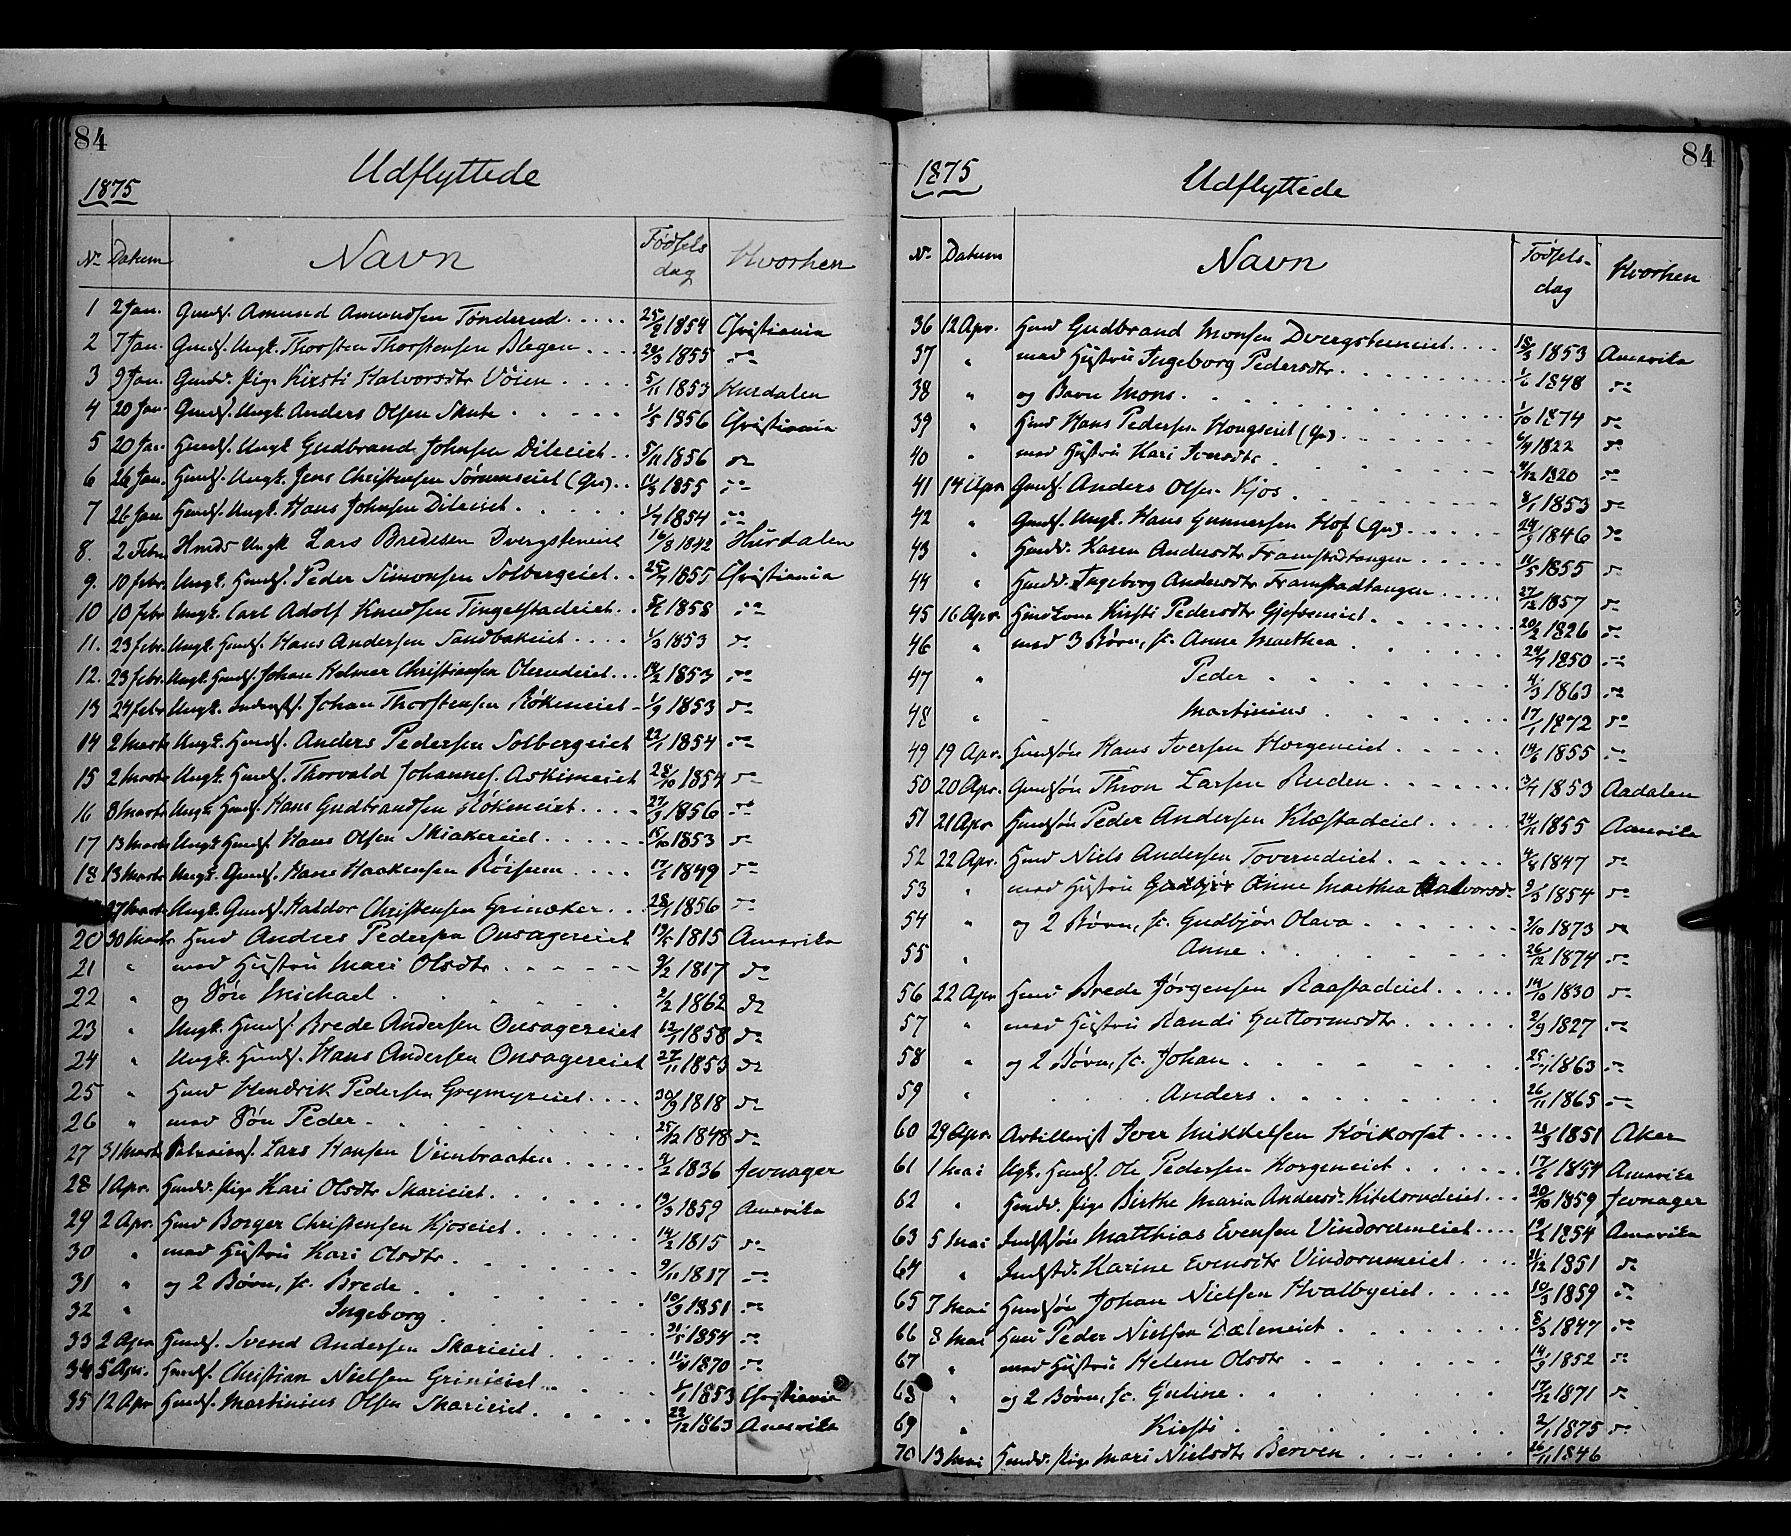 84
1875
Udflyttede
No Datum Navn Fødsels dag Hvorhen
1 2 Jan. Gmdf. Amund Amundsen Tønderud 25/2 1854 Christiania
2 7 Jan. Gmdf. Ungk. Thorsten Thorstensen Blegen 20/3 1855 do
3 9 Jan. Gmdd. Pige Kirsti Halvorsdtr Vøien 5/11 1853 Hurdalen
4 20 Jan. Gmdf. Ungk. Anders Olsen Skute 1/5 1856 Christiania
5 20 Jan. Hmdf. Ungk Gudbrand Johnsen Dileiet 5/11 1856 do
6 26 Jan. Hmdf. Ungk. Jens Christensen Sørumseiet (Gr.) 11/3 1855 do
7 26 Jan Hmdf. Ungk. Hans Johnsen Dileiet 1/7 1854 do
8. 2 Febr. Hmds Ungk Lars Bredesen Dvergsteneiet 16/8 1842 Hurdalen
9. 10 febr. Ungk. Hmdf. Peder Simonsen Solbergeiet 25/7 1855 Christiania
10 10 febr Ungk. Carl Adolf Knudsen Tingelstadeiet 5/2 1858 do
11. 23 febr. Ungk. Hmdf. Hans Andersen Sandbakeiet 1/3 1853 do
12. 23 febr. Ungk. Hmdf. Johan Helmer Christiansen Olerudeiet 14/2 1853 do
13 24 febr Ungk. Johan Thorstensen Røkeneiet 1/9 1853 do
14 2 Marts Ungk. Hmdf. Anders Pedersen Solbergeiet 23/1 1854 do
15 2 Marts Ungk. Hmdf. Thorvald Johannes. Askimeiet 28/10 1854 do
16 8 Marts Ungk Hmdf. Hans Gudbrandsen Røkeneiet 27/3 1856 do
17 13 Marts Ungk Hmdf. Hans Olsen Skiakereiet 15/10 1853 do
18 13 Marts Ungk. Gmdf. Hans Haakensen Røisum 17/6 1849 do
27 Marts Ungk. Gmdf. Haldor Christensen Grinaker 28/1 1856 do
20 30 Marts Hmd Anders Pedersen Onsagereiet 19/5 1815 Amerika
21 " med Hustru Mari Olsdtr 9/2 1817 do
22 " og Søn Michael 2/2 1862 do
23 Ungk. Hmdf. Brede Andersen Onsagereiet 12/7 1858 do
24 " Ungk. Hmdf. Hans Andersen Onsagereiet 27/11 1853 do
25 " Hmd Hendrik Pedersen Gregmyreiet 30/9 1818 do
26 " med Søn Peder 25/12 1848 do
27 31 Marts Lars Hansen Veinbraaten 9/2 1836 Jevnager
28 1 Apr. Hmdd. Pige Kari Olsdtr Skarieiet 19/3 1859 Amerika
29 2 Apr. Hmd Borger Christensen Kjoseiet 14/2 1815 do
30 " med Hustru Kari Olsdtr 9/11 1817 do
31 " og 2 Børn, fr. Brede 10/9 1851 do
32 " Ingeborg 21/5 1854 do
33 2 Apr Hmdf. Svend Andersen Skarieiet 11/4 1870 do
34 5 Apr. Hmdf. Christian Nielsen Grinieiet 1/1 1853 Christiania
35 12 Apr Hmdf. Martinius Olsen Skarieiet 22/12 1863 Amerika
84
1875
Udflyttede
No Datum Navn Fødsels-dag Hvorhen
36 12 Apr. Hmd Gudbrand Monsen Dvergsteneiet 18/3 1853 Amerika
37 " med Hustru Ingeborg Pedersdtr 1/6 1848 do
38 " og Barn Mons 1/10 1874 do
39 " Hmd Hans Pedersen Hougseiet (Gr.) 6/4 1822 do
40 " med Hustru Kari Iversdtr 4/12 1820 do
41 14 Apr Gmdf. Anders Olsen Kjos 8/1 1853 do
42 " Gmdf. Ungk. Hans Gunnersen Hof (Gr.) 24/9 1846 do
43 " Hmdd. Karen Andersdtr Framstadtangen 14/5 1855 do
44 " Hmdd. Ingeborg Andersdtr Framstadtangen 27/12 1857 do
45 16 Apr. Hmdkone Kirsti Pedersdtr Gjefseneiet 20/2 1826 do
46 " med 3 Børn, fr. Anne Marthea 24/7 1850 do
47 " Peder 4/3 1863 do
48 " Martinius 17/1 1872 do
49 19 Apr. Hmdsøn Hans Iversen Horgeneiet 14/6 1855 do
50 20 Apr. Gmdsøn Thron Larsen Ruden 3/7 1853 Aadalen
51 21 Apr Hmdsøn Peder Andersen Klæstadeiet 24/11 1855 Amerika
52 22 Apr. Hmd Niels Andersen Toverudeiet 4/6 1847 do
53 " med Hustru Anne Marthea Halvorsd. 9/3 1854 do
54 " og 2 Børn, fr. Gudbjør Olava 3/10 1873 do
55 " Anne 26/12 1874 do
56 22 Apr Hmd Brede Jørgensen Raastadeiet 14/10 1830 do
57 " med Hustru Randi Guttormsdtr 2/9 1827 do
58 " og 2 Børn, fr. Johan 25/1 1863 do
59 " Anders 26/11 1865 do
60 29 Apr. Artillerist Iver Mikkelsen Køikorset 28/3 1851 Aker
61 1 Mai Ugk. Hmdf. Ole Pedersen Horgeneiet 17/6 1854 Amerika
62 " Hmdd. Pige Birthe Maria Andersd. Kitelsrudeiet 20/10 1859 Jevnager
63 5 Mai Indstsøn Matthias Evensen Vindorumeiet 19/2 1854 Amerika
64 " Indstd. Karine Evensdtr Vindorumeiet 21/12 1851 do
65 7 Mai Hmdsøn Johan Nielsen Hvalbyeiet 10/3 1859 do
66 8 Mai Hmd Peder Nielsen Dæleneiet 5/3 1847 do
67 " med Hustru Helene Olsdtr 14/9 1852 do
68 " og 2 Børn, fr. Guline 17/12 1871 do
69 " Kirsti 2/1 1875 do
70 13 Mai Hmdd. Pige Mari Nielsdtr Berven 26/11 1846